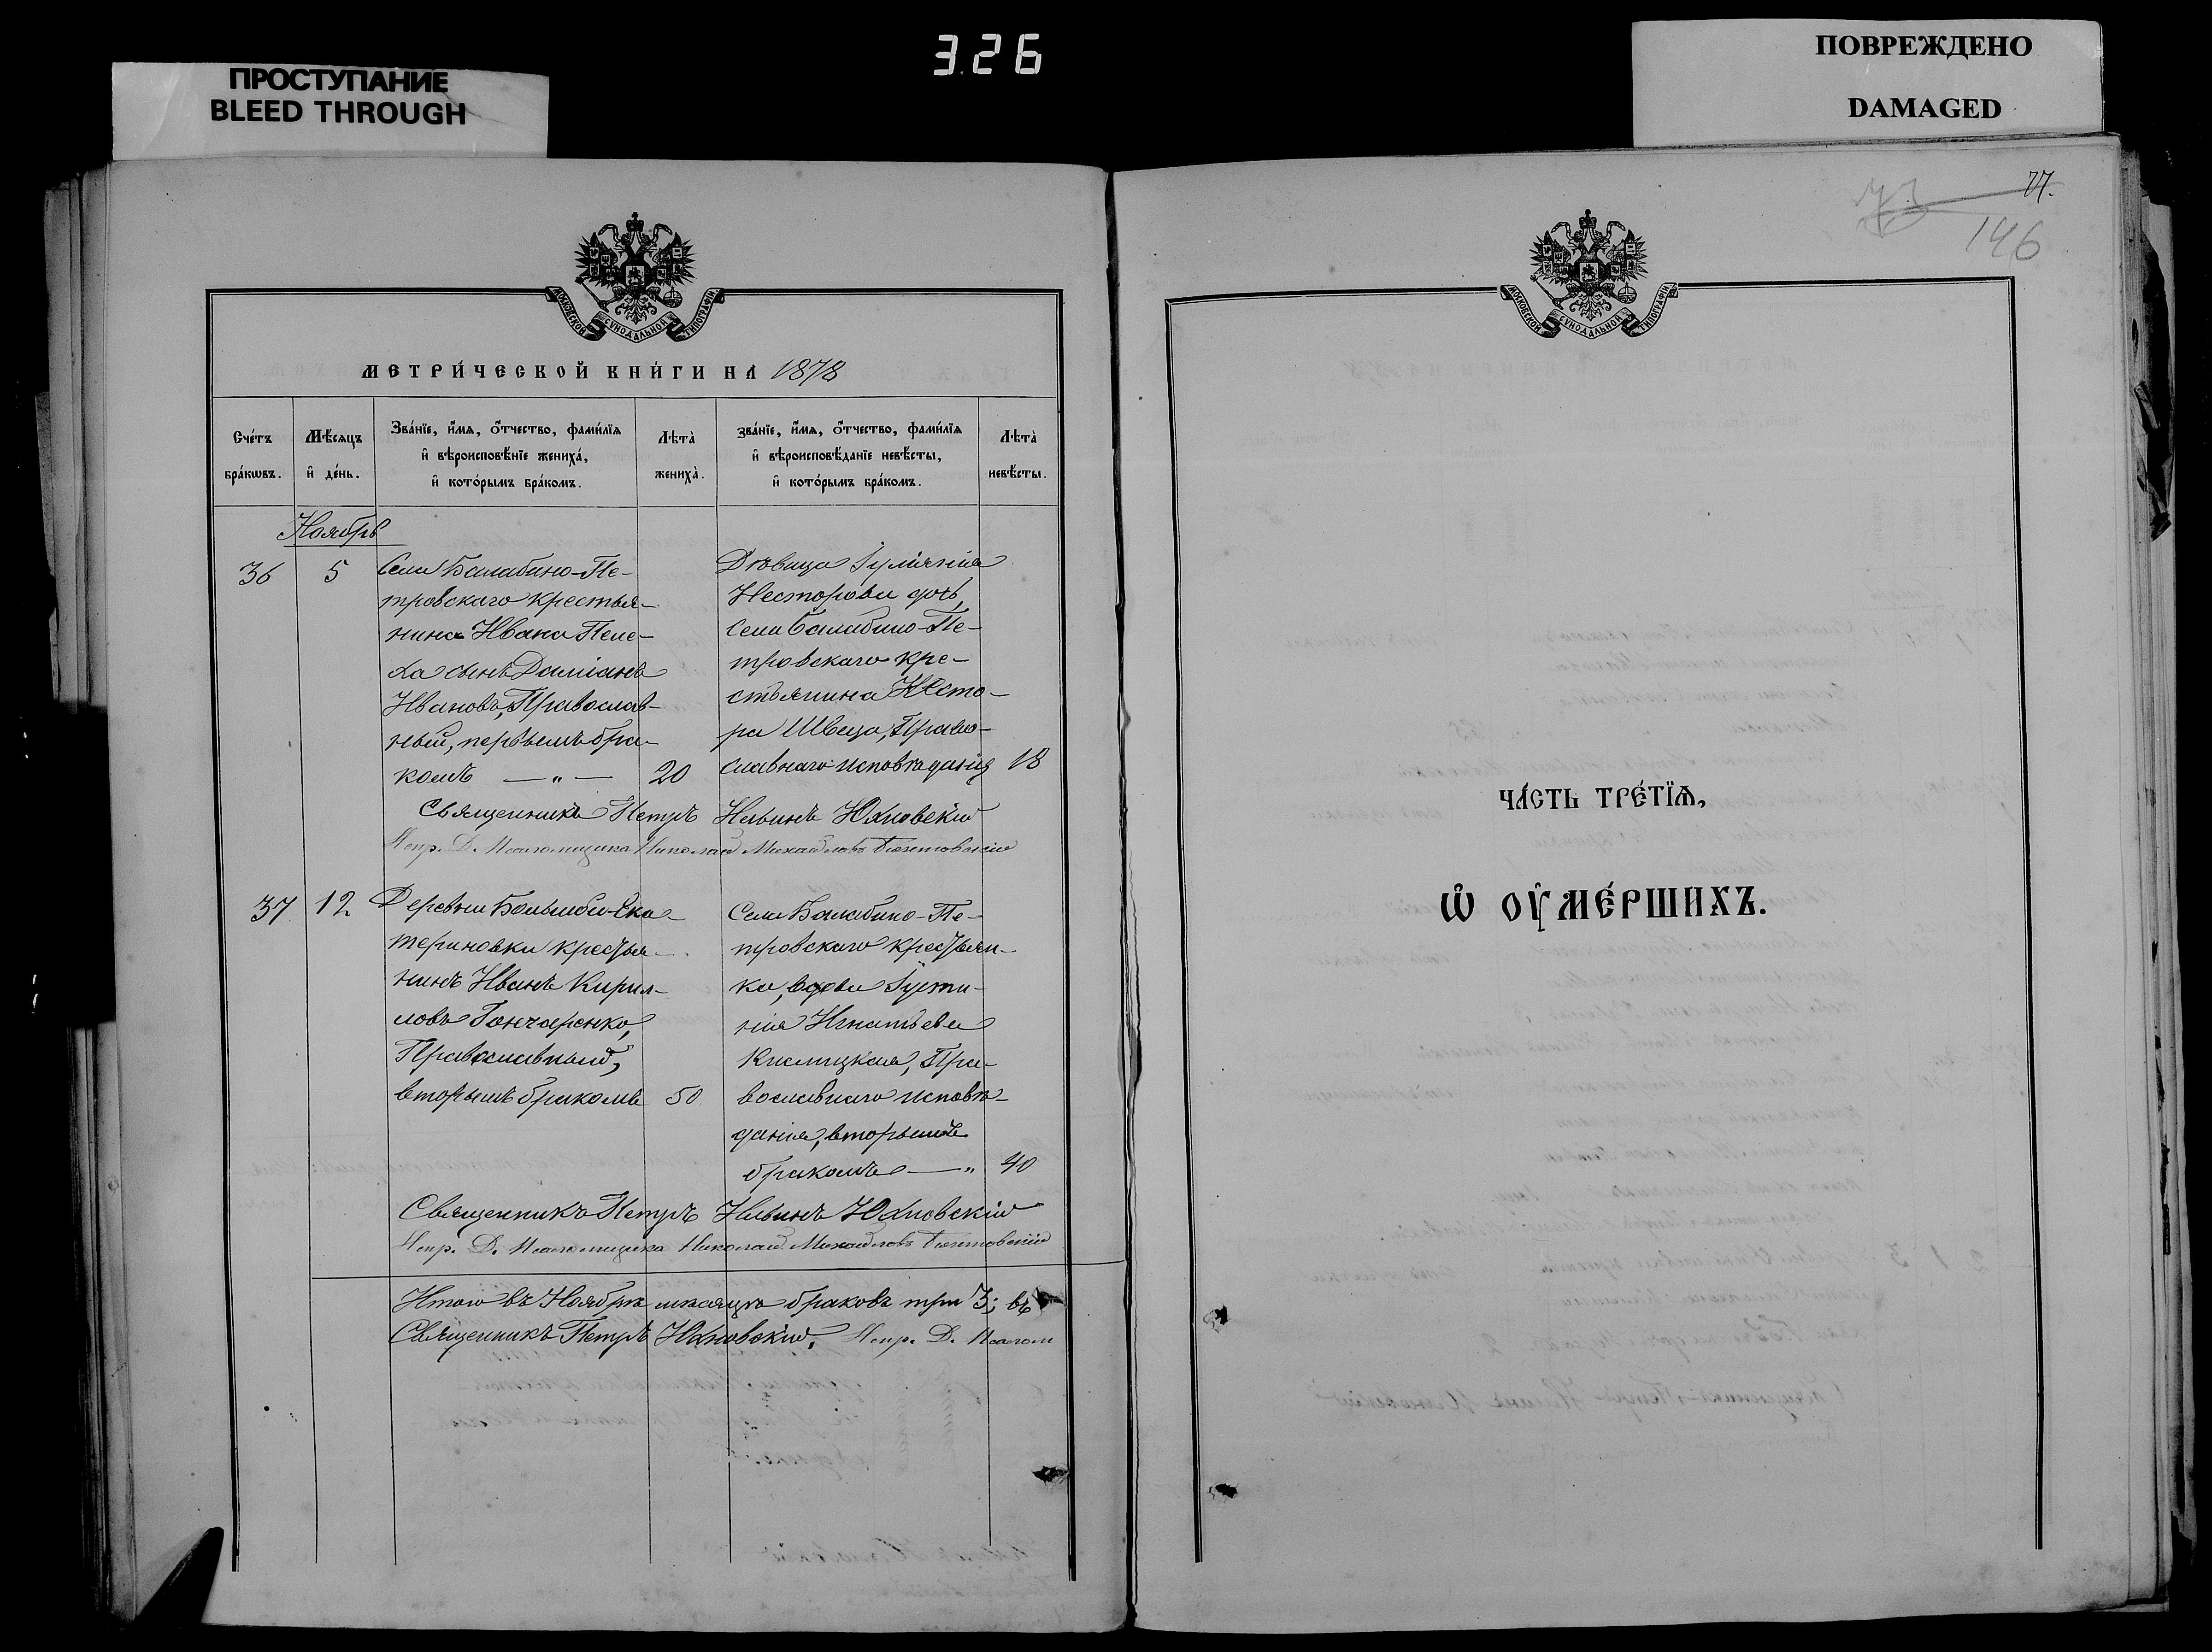 326
ПРОСТУПАНИЕ
BLEED THROUGH
ПОВРЕЖДЕНО
DAMAGED
77.
73
146
МОСКОВСКОЙ СѴНОДАЛЬНОЙ ТИПОГРАФІИ
МЕТРИ́ЧЕСКОЙ КНИ́ГИ НА 1878
Сче́тъ бра́кѡвъ.
Мѣ́сяцъ и҆ де́нь.
Зва́нїе, и҆́мѧ, о҆́тчество, фами́лїѧ и҆ вѣроисповѣ́нїе жениха̀, и҆ кото́рымъ бра́комъ.
Лѣта̀ жениха̀.
зва́нїе, и҆́мѧ, о҆́тчество, фами́лїѧ и҆ вѣроисповѣ́данїе невѣ́сты, и҆ кото́рымъ бра́комъ.
Лѣта̀ невѣ́сты.
Ноябрь
36 5
Села Балабано-Пе-
тровскаго крестья-
нина Ивана Пеле-
ха сынъ Даміанъ
Ивановъ, Православ-
ный, первымъ бра-
комъ — „ — 20
Дѣвица Іуліанія
Несторова дочь,
Села Балабино-Пе-
тровскаго кре-
стьянина Несто-
ра Швеца, Право-
славнаго исповѣданія 18
Священникъ Петръ Ильинъ Юхновскій
Испр. Д. Псаломщика Николай Михайловъ
37 12
Деревни Большой-Ека-
териновки крестья-
нинъ Иванъ Кирил-
ловъ Гончаренко,
Православный,
вторымъ бракомъ 50
Села Балабино-Пе-
тровскаго крестьян-
ка, вдова Іусти-
нія Игнатьева
Кислицкая, Пра-
вославнаго исповѣ-
данія, вторымъ
бракомъ — „ 40
Священникъ Петръ Ильинъ Юхновскій
Испр. Д. Псаломщика Николай Михайловъ
Итого въ Ноябрѣ мѣсяцѣ браковъ три 3; въ
Священникъ Петръ Юхновскій, Испр. Д. Псалом
ЧА́СТЬ ТРЕ́ТЇѦ,
Ѡ҆ ОУ҆МЕ́РШИХЪ.